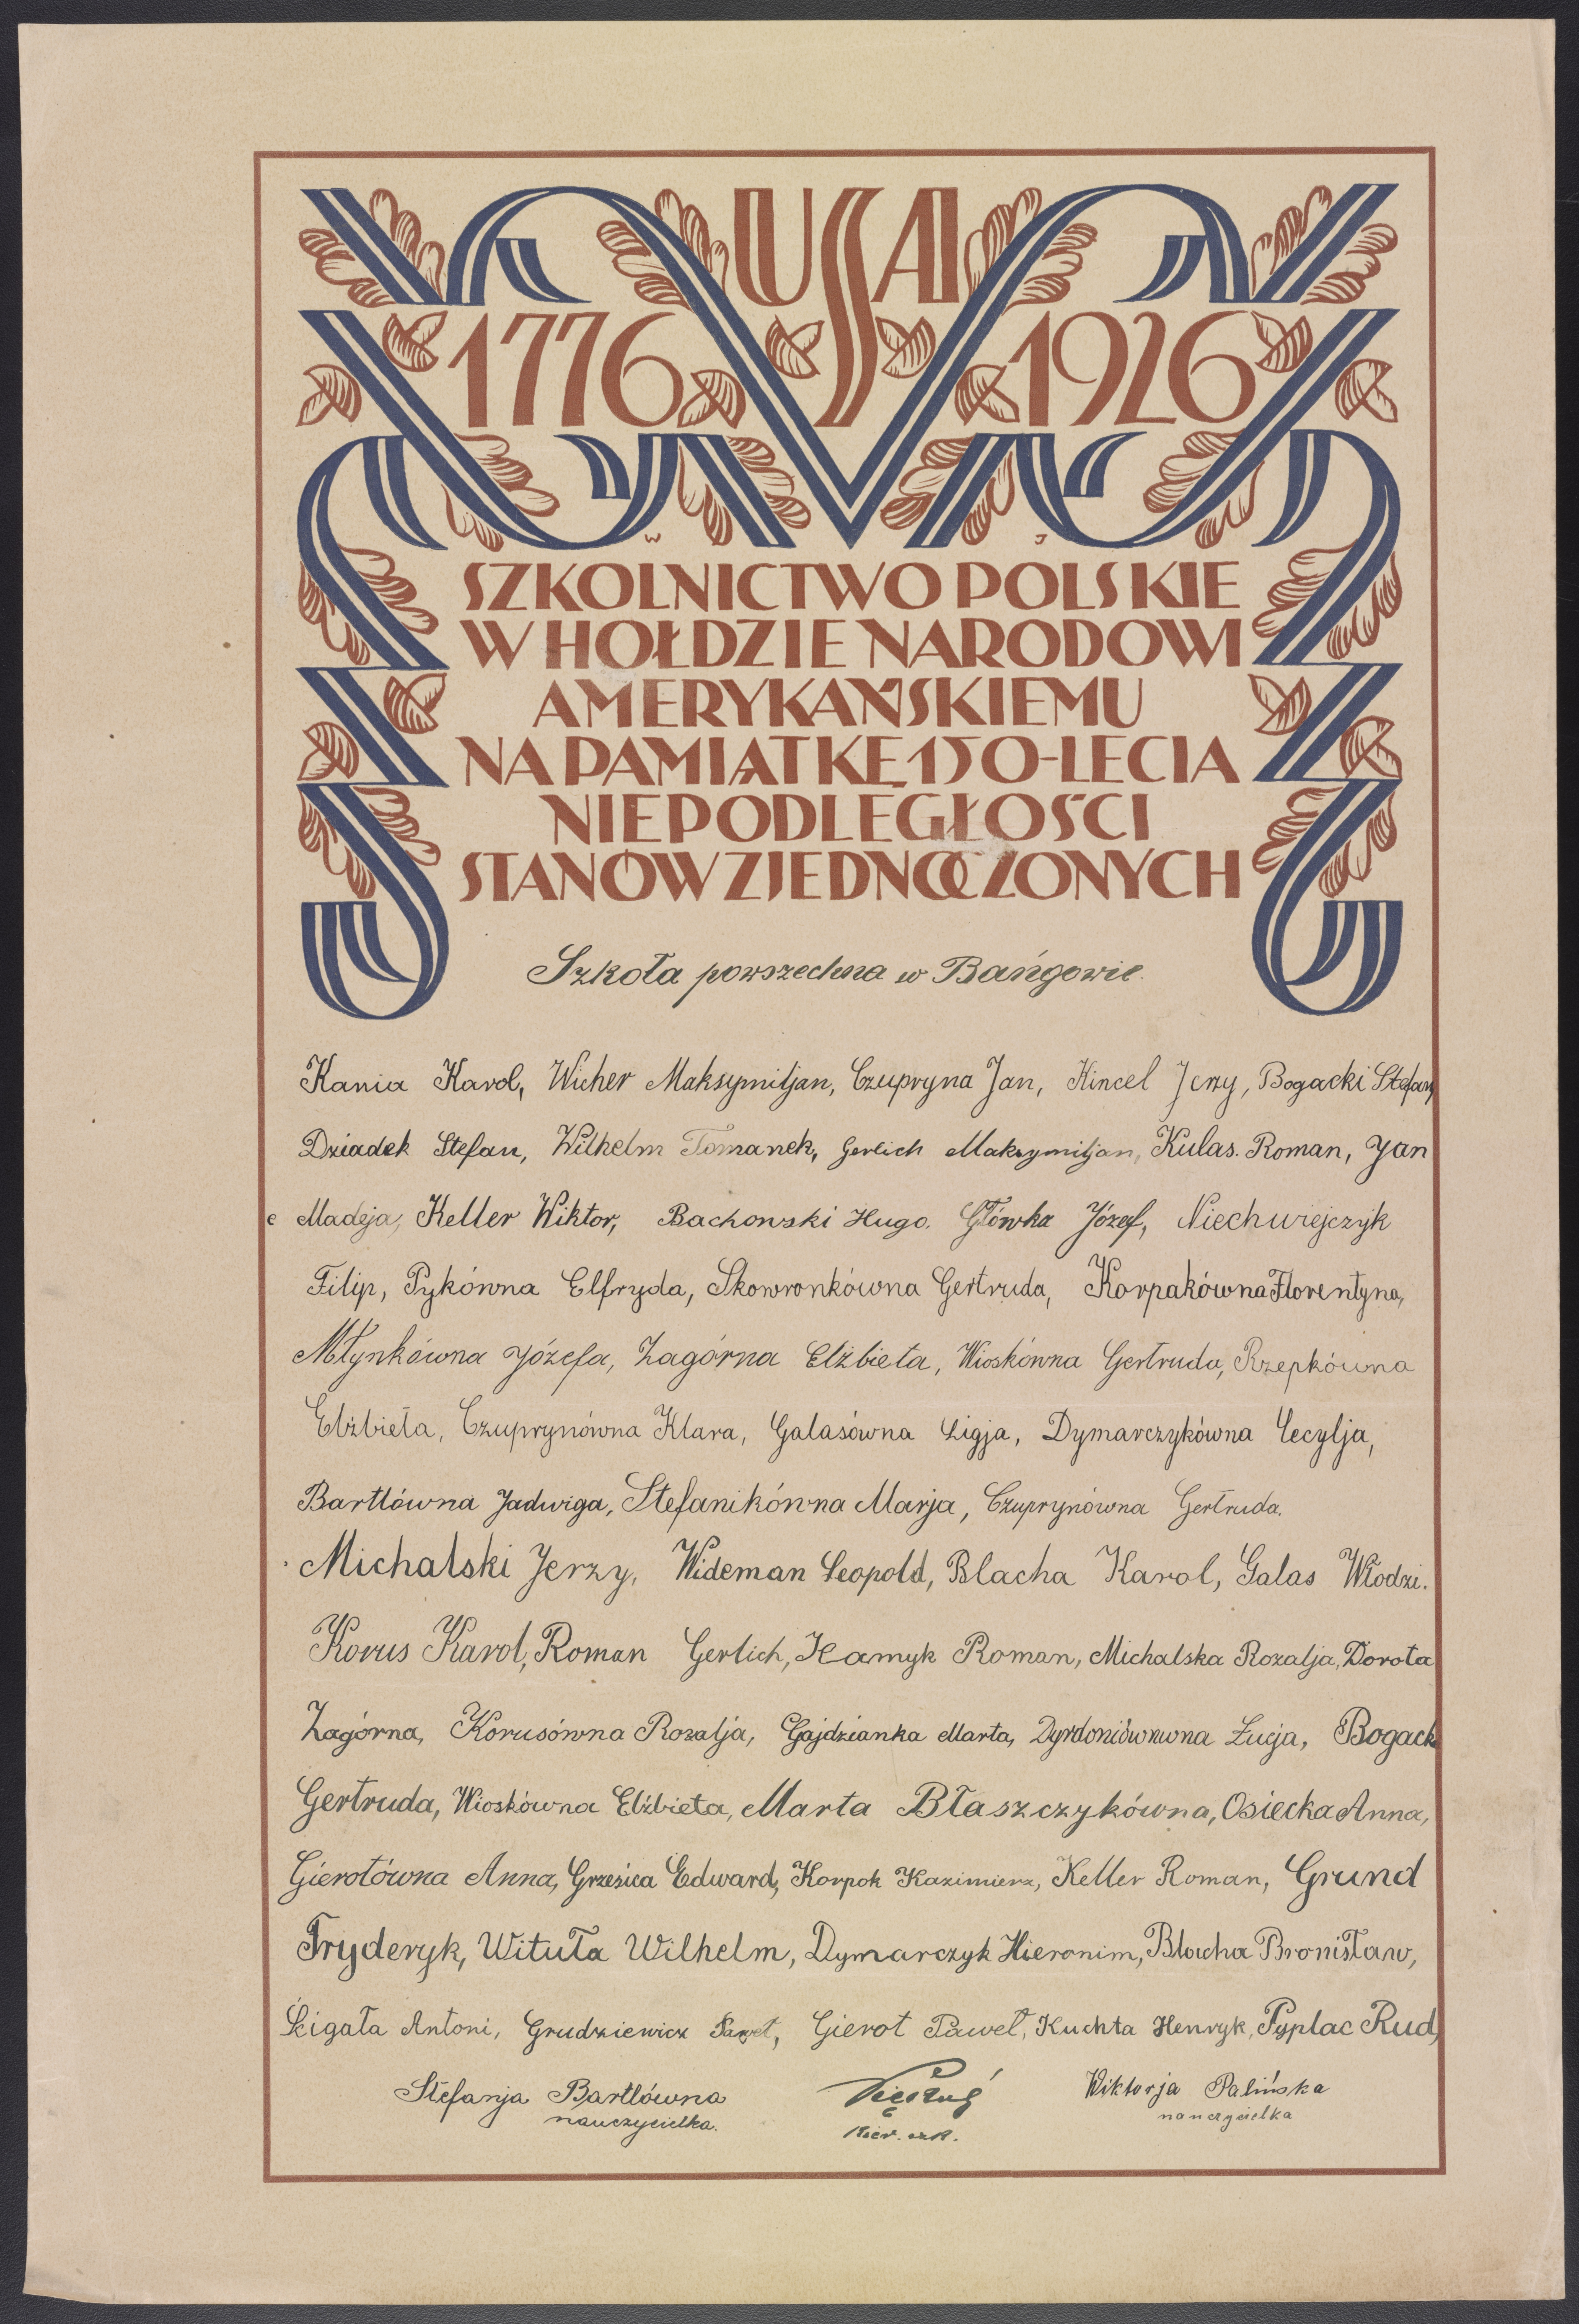 USA
1776 1926
W J
SZKOLNICTWO POLSKIE
W HOŁDZIE NARODOWI
AMERYKAŃSKIEMU
NA PAMIĄTKĘ 150-LECIA
NIEPODLEGŁOŚCI
STANÓW ZJEDNOCZONYCH
Szkoła powszechna w Bańgowie.
Kania Karol, Wicher Maksymiljan, Czupryna Jan, Kincel Jerzy, Bogacki Stefan,
Dziadek Stefan, Wilhelm Tomanek, Gerlich Maksymiljan, Kulas. Roman, Jan
e Madeja, Keller Wiktor, Bachowski Hugo. Główka Józef, Niechwiejczyk
Filip, Pykówna Elfryda, Skowronkówna Gertruda, Korpakówna Florentyna,
Młynkówna Józefa, Zagórna Elżbieta, Wioskówna Gertruda, Rzepkówna
Elżbieta, Czuprynówna Klara, Galasówna Ligja, Dymarczykówna Cecylja,
Bartlówna Jadwiga, Stefanikówna Marja, Czuprynówna Gertruda.
Michalski Jerzy, Wideman Leopold, Blacha Karol, Galas Włodzi.
Korus Karol, Roman Gerlich, Hamyk Roman, Michalska Rozalja, Dorota
Zagórna, Korusówna Rozalja, Gajdzianka Marta, Łucja, Bogack
Gertruda, Wioskówna Elżbieta, Marta Błaszczykówna, Osiecka Anna,
Gierotówna Anna, Grzesica Edward, Korpok Kazimierz, Keller Roman, Grund
Fryderyk, Wituła Wilhelm, Dymarczyk Hieronim, Blacha Bronisław,
Ścigała Antoni, Grudziewicz Paweł, Gierot Paweł, Kuchta Henryk, Pyplac Rud,
Stefanja Bartlówna Wiktorja Palińska
nauczycielka. Kier. szk. nauczycielka